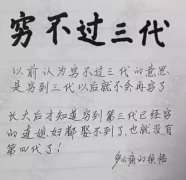 穷不过三代
以前认为穷不过三代的意思
是穷到三代以后就不会再穷了
长大后才知道穷到第三代已经穷
的连媳妇都娶不到了,也就没有
第四代了!